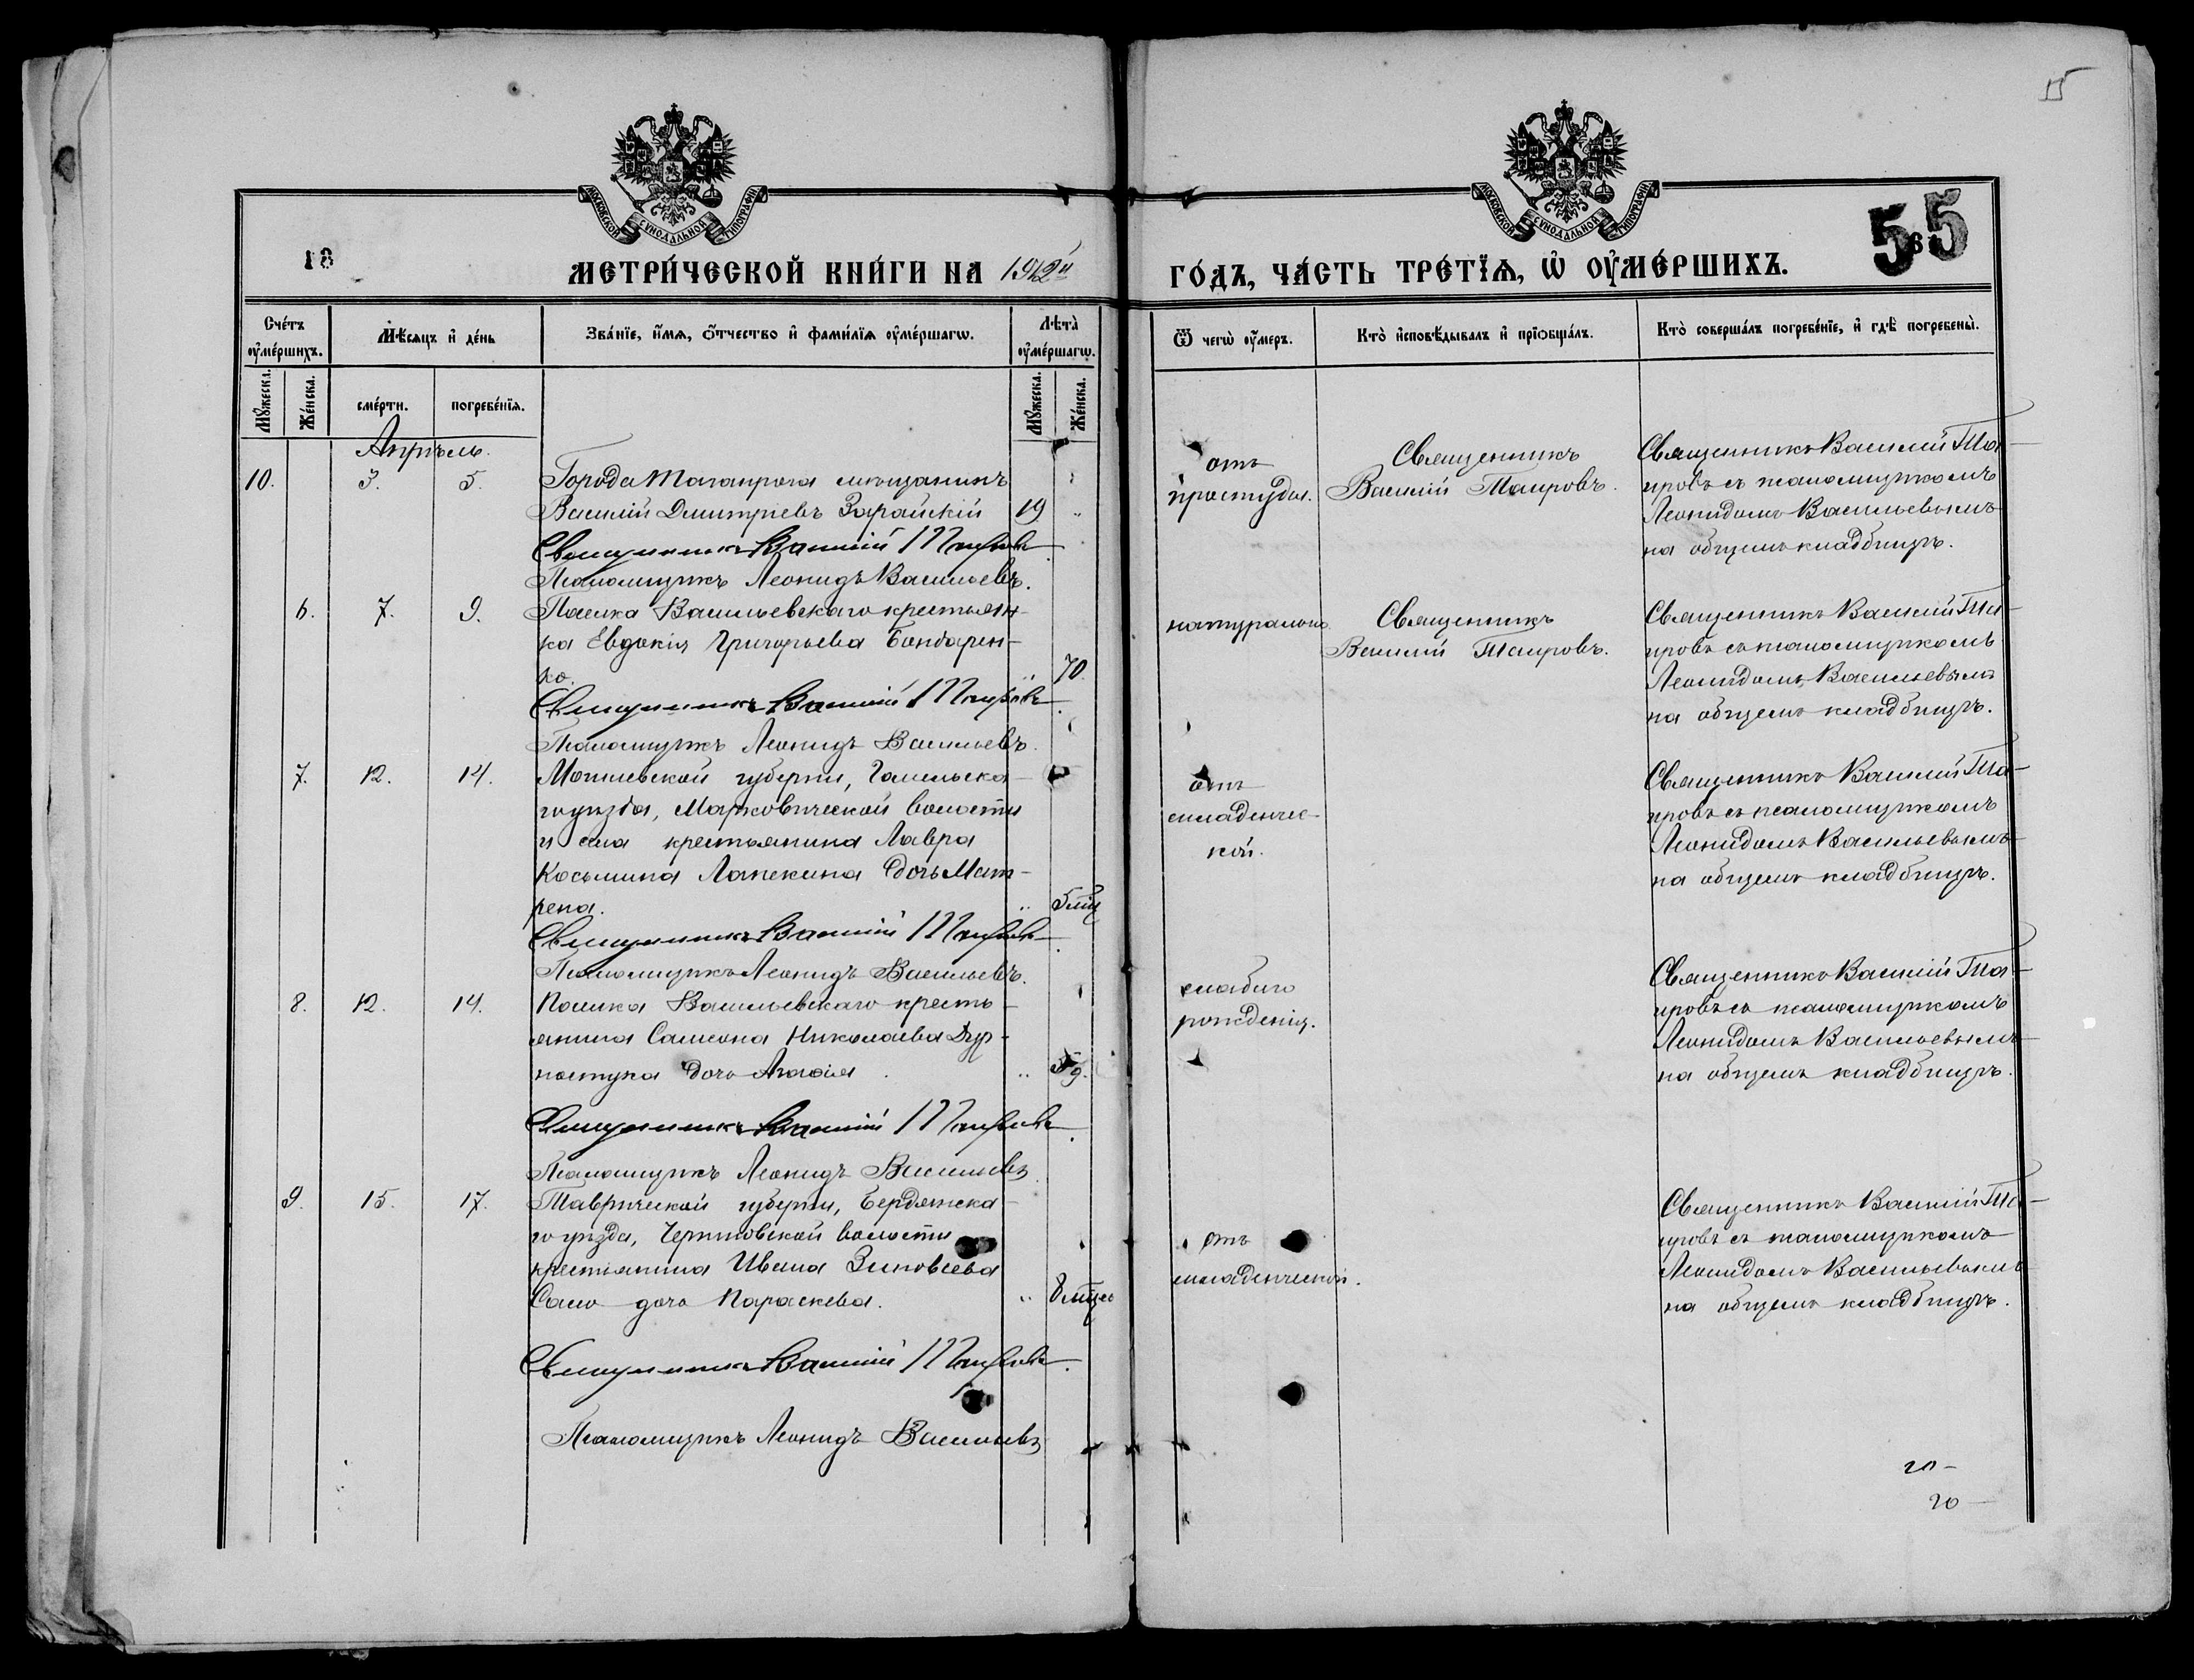 55
МОСКОВСКОЙ СУНОДАЛЬНОЙ ТИПОГРАФІИ
МОСКОВСКОЙ СУНОДАЛЬНОЙ ТИПОГРАФІИ
18
МЕТРИ́ЧЕСКОЙ КНИ́ГИ НА 1912й
ГО́ДЪ, ЧА́СТЬ ТРЕ́ТЇѦ, Ѡ҆ ОУ҆МЕ́РШИХЪ.
Сче́тъ оу҆ме́ршихъ.
Мѣ́сяцъ и҆ де́нь
Зва́нїе, и҆́мѧ, ѻ҆́тчество и҆ фами́лїѧ оу҆ме́ршагѡ.
Лѣ̀та оу҆ме́ршагѡ.
Ѿ чегѡ̀ оу҆́меръ.
Кто̀ и҆сповѣ́дывалъ и҆ прїѡбща́лъ.
Кто̀ соверша́лъ погребе́нїе, и҆ гдѣ̀ погребены̀.
Мꙋ́жеска.
Же́нска.
сме́рти.
погребе́нїѧ.
Мꙋ́жеска.
Же́нска.
Апрѣль.
10. 3. 5.
Города Таганрога мѣщанинъ
Василій Дмитріевъ Зарайскій 19 „
Священникъ Василій Таировъ.
Псаломщикъ Леонидъ Васильевъ.
отъ
простуды.
Священникъ
Василій Таировъ.
Священникъ Василій Таи-
ировъ съ псаломщикомъ
Леонидомъ Васильевымъ
на общемъ кладбищѣ.
6. 7. 9.
Поселка Васильевскаго крестьян-
ка Евдокія Григорьева Бондарен-
ко. „ 70.
Священникъ Василій Таировъ.
Псаломщикъ Леонидъ Васильевъ.
натурально
Священникъ
Василій Таировъ.
Священникъ Василій Таи-
ировъ съ псаломщикомъ
Леонидомъ Васильевымъ
на общемъ кладбищѣ.
7. 12. 14.
Могилевской губерніи, Гомельска-
го уѣзда, Марковической волости
и села крестьянина Лавра
Косьмина Лапекина дочь Мат-
рена. „ 5 мц
Священникъ Василій Таировъ.
Псаломщикъ Леонидъ Васильевъ.
отъ
младенчес-
кой.
Священникъ Василій Та-
ировъ съ псаломщикомъ
Леонидомъ Васильевымъ
на общемъ кладбищѣ.
8. 12. 14.
Поселка Васильевскаго кресть-
янина Самсона Николаева
дочь „ д.
Священникъ Василій Таировъ.
Псаломщикъ Леонидъ Васильевъ.
слабаго
рожденія.
Священникъ Василій Та-
ировъ съ псаломщикомъ
Леонидомъ Васильевымъ
на общемъ кладбищѣ.
9. 15. 17.
Таврической губерніи, Бердянска-
го уѣзда, Черниговской волости
крестьянина Ивана Зиновьева
Само дочь Параскева. „ 8 мцев
Священникъ Василій Таировъ.
Псаломщикъ Леонидъ Васильевъ
отъ
младенческой.
Священникъ Василій Та-
ировъ съ псаломщикомъ
Леонидомъ Васильевымъ
на общемъ кладбищѣ.
20 -
20 -